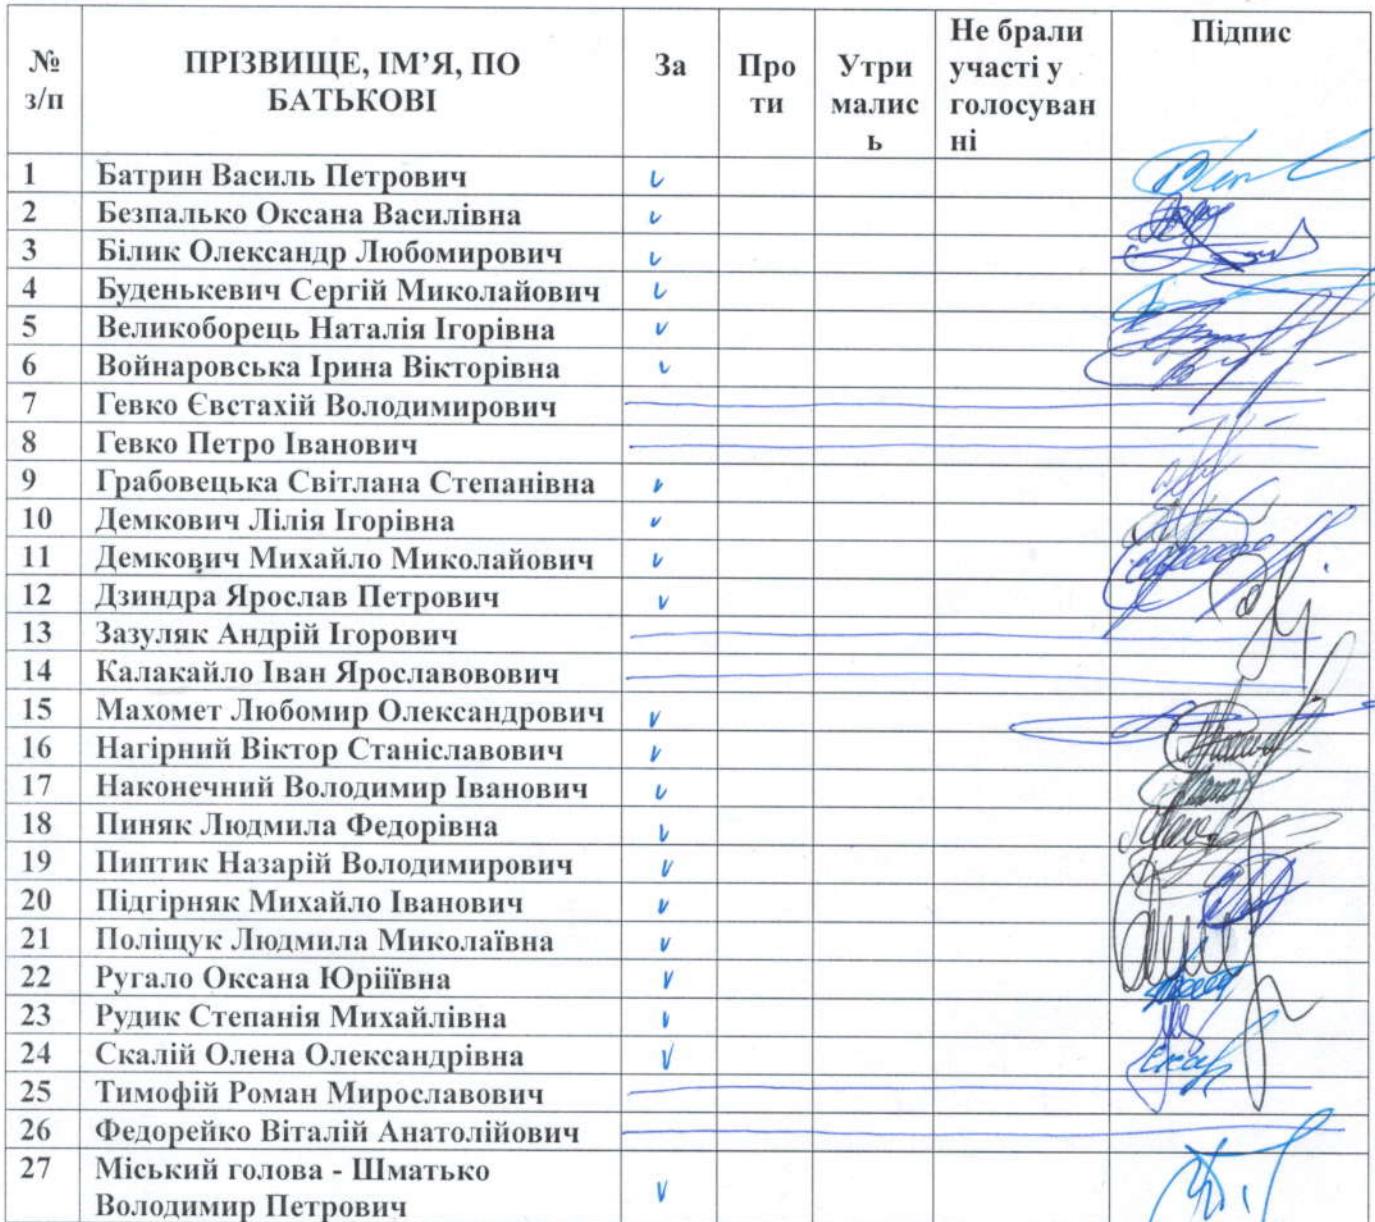 № з/п ПРІЗВИЩЕ, ІМ’Я, ПО БАТЬКОВІ За Про ти Утри малис ь Не брали участі у голосуван ні Підпис
1 Батрин Василь Петрович v
2 Безпалько Оксана Василівна v
3 Білик Олександр Любомирович v
4 Буденькевич Сергій Миколайович v
5 Великоборець Наталія Ігорівна v
6 Войнаровська Ірина Вікторівна v
7 Гевко Євстахій Володимирович
8 Гевко Петро Іванович
9 Грабовецька Світлана Степанівна v
10 Демкович Лілія Ігорівна v
11 Демкович Михайло Миколайович v
12 Дзиндра Ярослав Петрович v
13 Зазуляк Андрій Ігорович
14 Калакайло Іван Ярославовович
15 Махомет Любомир Олександрович v
16 Нагірний Віктор Станіславович v
17 Наконечний Володимир Іванович v
18 Пиняк Людмила Федорівна v
19 Пиптик Назарій Володимирович v
20 Підгірняк Михайло Іванович v
21 Поліщук Людмила Миколаївна v
22 Ругало Оксана Юріїївна v
23 Рудик Степанія Михайлівна v
24 Скалій Олена Олександрівна v
25 Тимофій Роман Мирославович
26 Федорейко Віталій Анатолійович
27 Міський голова - Шматько
Володимир Петрович v